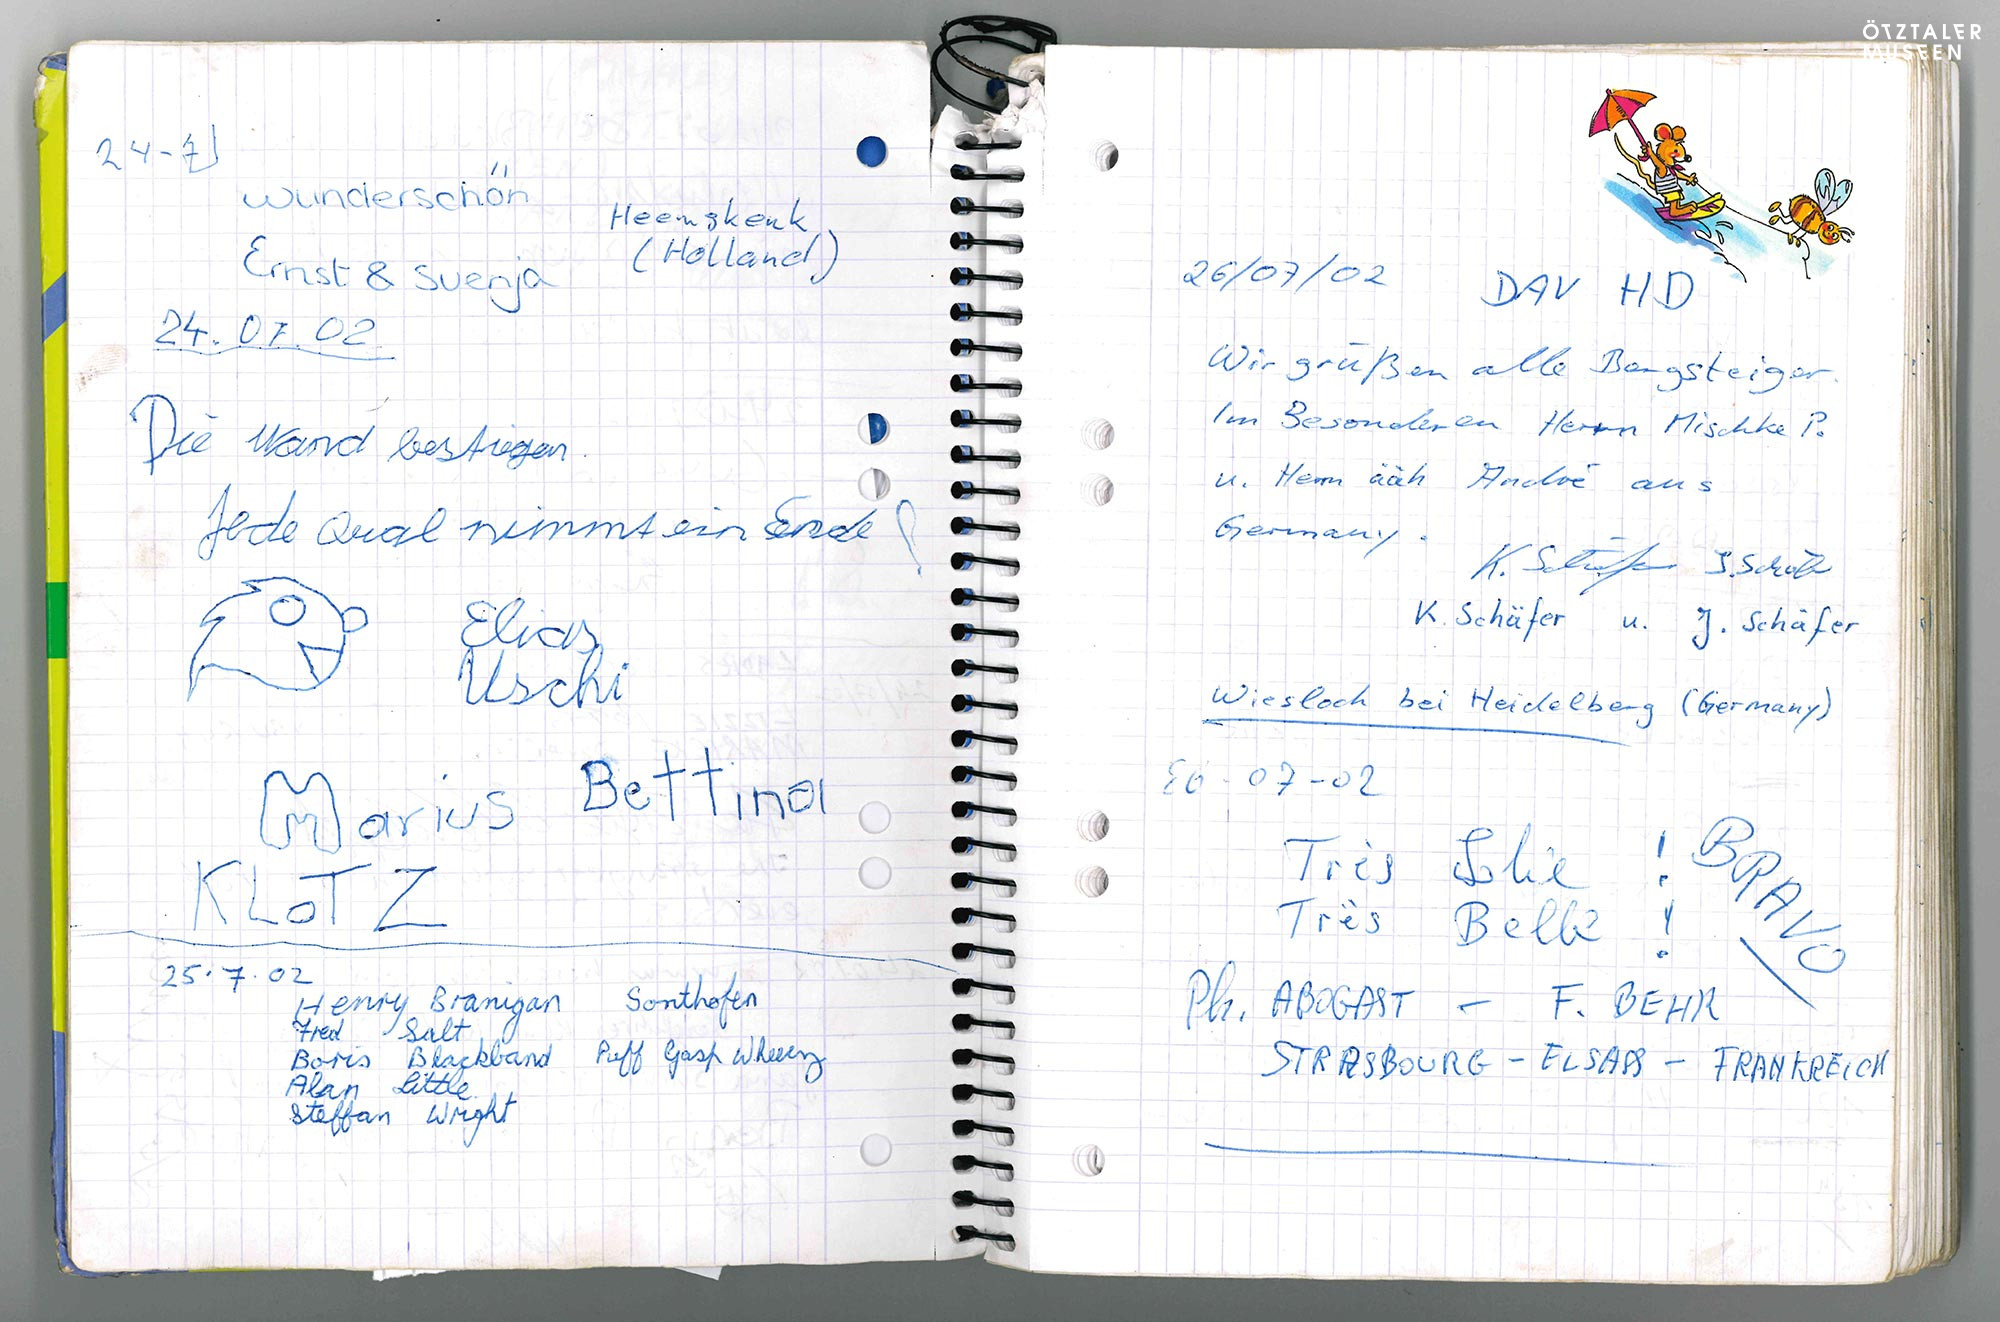 ÖTZTALER
MUSEEN
24-7
wunderschön
Heemskerk
(Holland)
Ernst & Svenja
24.07.02
Die Wand bestiegen.
Jede Qual nimmt ein Ende!
Elias
Uschi
Marius Bettina
KLOTZ
25.7.02
Henry Branigan Sonthofen
Fred Salt
Boris Blackband Puff Gasp Wheezy
Alan Little
Steffan Wright
26/07/02 DAV HD
Wir grüßen alle Bergsteiger.
Im Besonderen Herrn Mischke P.
u. Herrn ääh André aus
Germany.
K. Schäfer J. Schäfer
K. Schäfer u. J. Schäfer
Wiesloch bei Heidelberg (Germany)
-07-02
Très Jolie !
Très Belle !
BRAVO
Ph. ABOGAST - F. BEHR
STRASBOURG - ELSASS - FRANKREICH